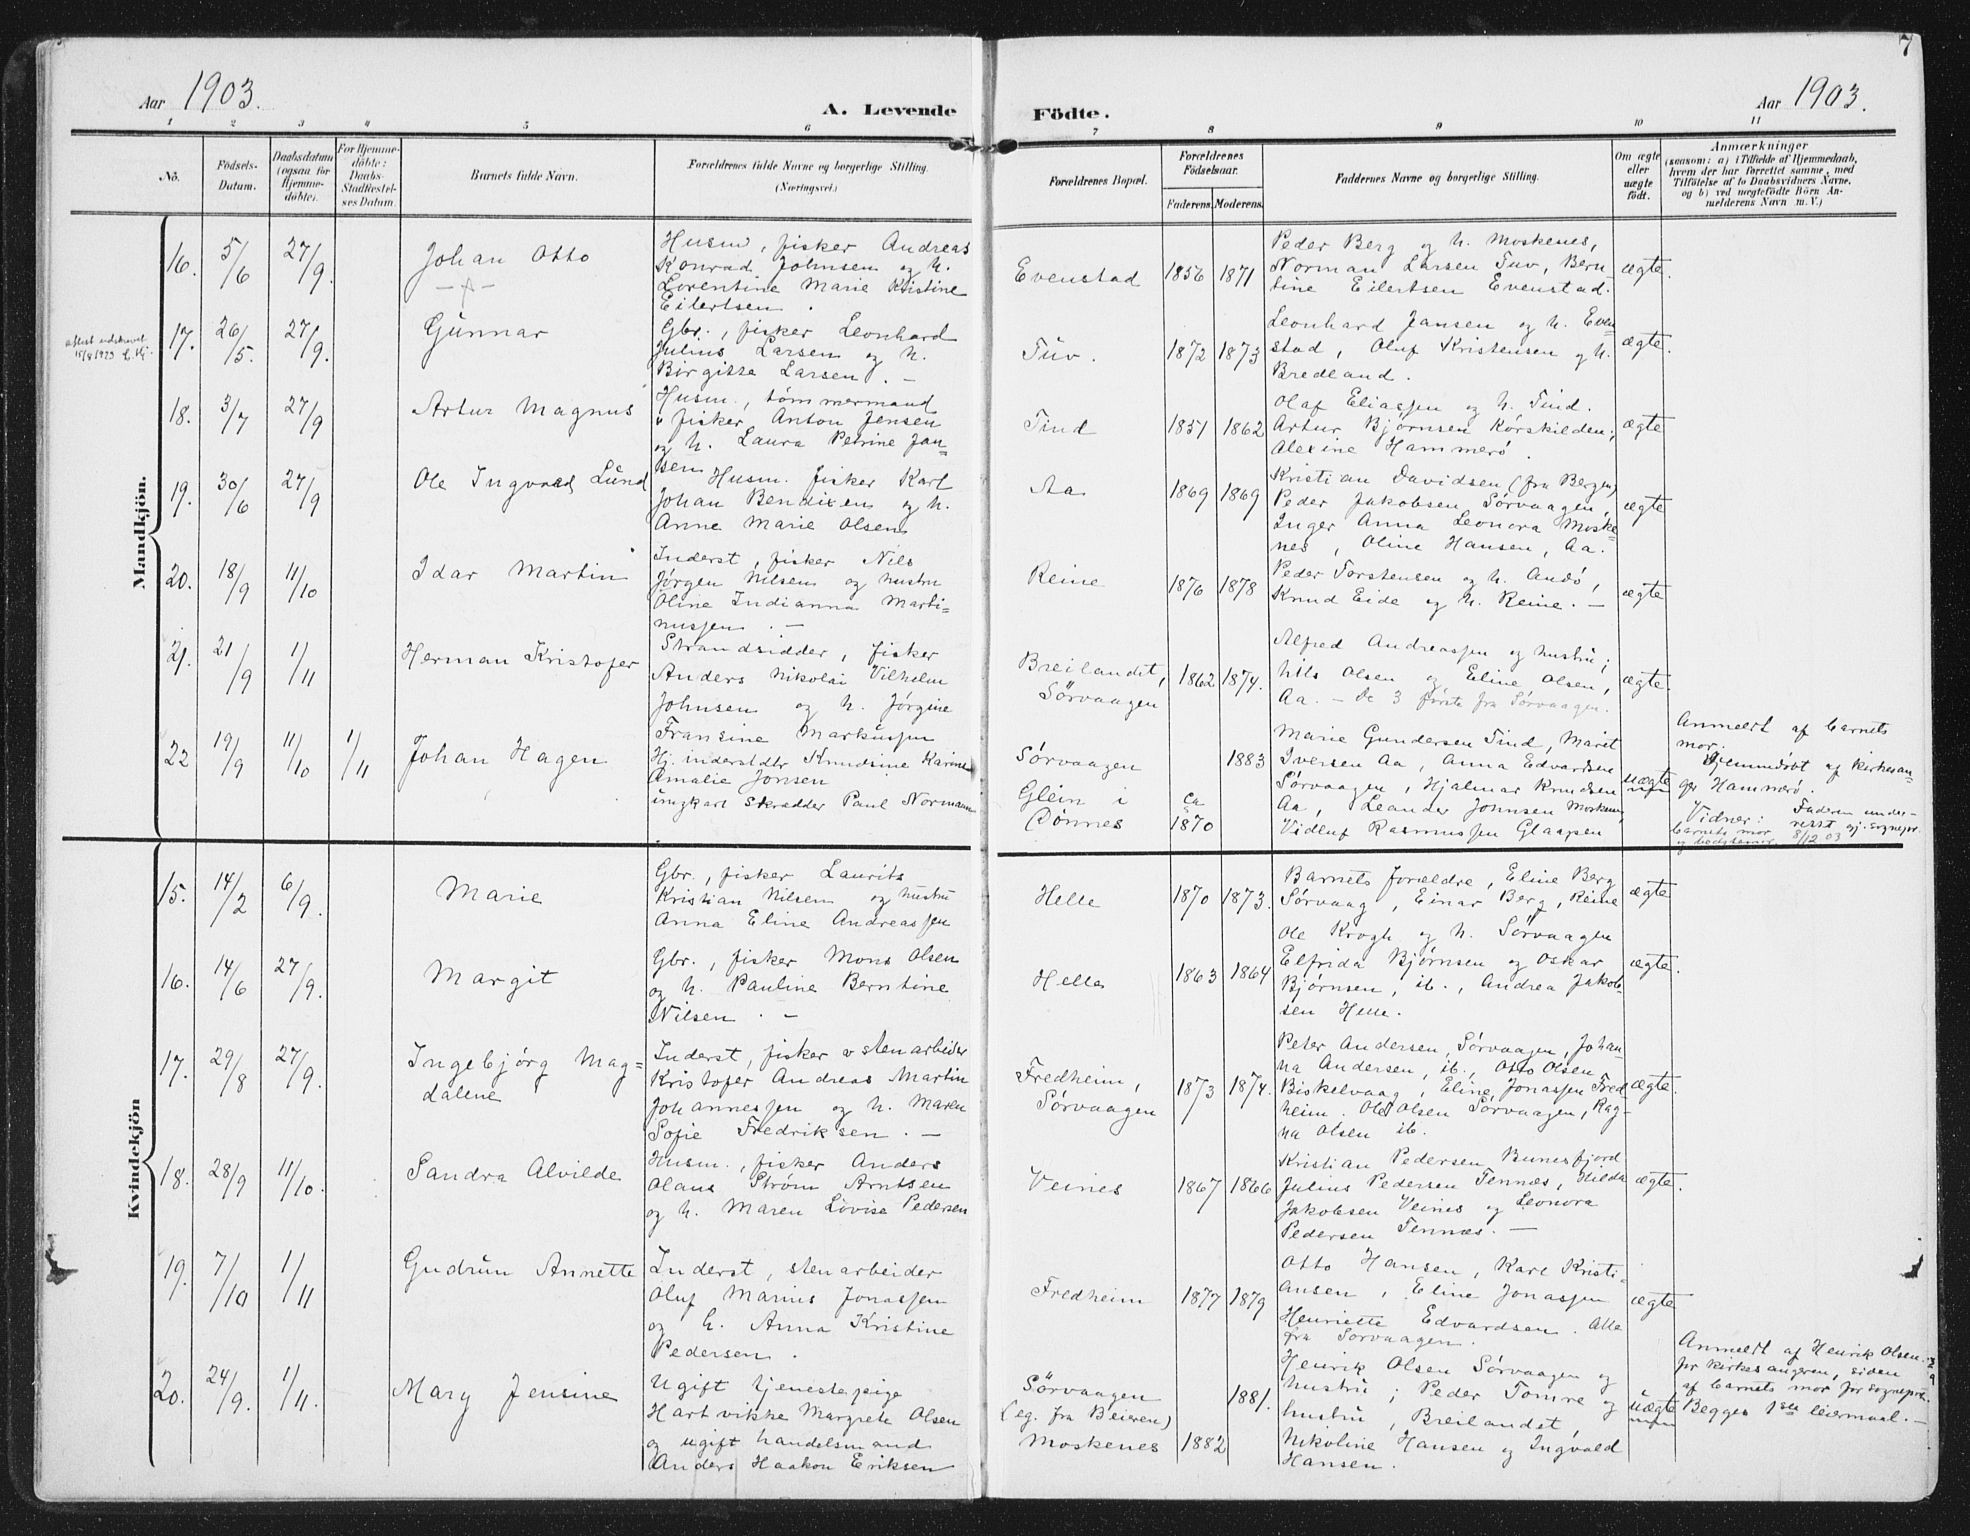 7
Aar 1903.
A. Levende
Födte.
Aar 1903.
1 2 3 4 5 6 7 8 9 10 11
No.
Födsels-
Datum.
Daabsdatum
(ogsaa for
Hjemme-
döbte).
For Hjemme-
döbte:
Daabs-
Stadfæstel-
ses Datum.
Barnets fulde Navn.
Forældrenes fulde Navne og borgerlige Stilling.
(Næringsvei.)
Forældrenes Bopæl.
Forældrenes
Födselsaar.
Faderens. Moderens.
Faddernes Navne og borgerlige Stilling.
Om ægte
eller
uægte
födt.
Anmærkninger
(saasom: a) i Tilfælde af Hjemmedaab,
hvem der har forrettet samme, med
Tilföielse af to Daabsvidners Navne,
og b) ved uægtefödte Börn An-
melderens Navn m. V.)
Mandkjön.
16. 5/6 27/9. Johan Otto
Husm, fisker Andreas
Konrad Johnsen og h.
Lorentine Marie Kristine
Eilertsen.
Evenstad 1856 1871
Peder Berg og h. Moskenes,
Norman Larsen Tuv, Bern-
tine Eilertsen Evenstad.
ægte.
15/8 1923
17. 26/5. 27/9. Gunnar
Gbr., fisker Leonhard
Julius Larsen og h.
Birgitte Larsen. -
Tuv. 1872 1873
Leonhard Jansen og h. Even-
stad, Oluf Kristensen og h.
Bredland.
ægte.
18. 3/7 27/9 Artur Magnus
Husm., tømmermand
& fisker Anton Jensen
og h. Laura Petrine Jan-
sen
Tind 1857 1862
Olaf Eliassen og h. Tind.
Artur Bjørnsen Korskilden,
Alexine Hammerö.
ægte
19. 30/6 27/9 Ole Ingvald Lund
Husm. fisker Karl
Johan Bendixen og h.
Anne Marie Olsen
Aa 1869 1869
Kristian Davidsen (fra Bergen)
Peder Jakobsen Sørvaagen,
Inger Anna Leonora Moske-
nes, Oline Hansen, Aa.
ægte
20. 18/9 11/10 Idar Martin
Inderst, fisker Nils
Jørgen Nilsen og hustru
Oline Indianna Marti-
nussen. -
Reine 1876 1878
Peder Torstensen og h. Andö,
Knud Eide og h. Reine. -
ægte
21. 21/9 1/11 Herman Kristofer
Strandsidder, fisker
Anders Nikolai Vilhelm
Johnsen og h. Jørgine
Fransine Markussen
Breilandet,
Sørvaagen
1862 1874.
Alfred Andreassen og hustru;
Nils Olsen og Eline Olsen,
Aa. - De 3 første fra Sørvaagen.
ægte.
22 19/9 11/10 1/11 Johan Hagen
Hj. inderstdtr Knudsine Karine
Amalie Jonsen
ungkarl Skrædder Paul Normann
Sørvaagen 1883
Glein i
Dønnes
ca 1870
Marie Gundersen Tind, Marit
Iversen Aa, Anna Edvardsen
Sørvaagen, Hjalmar Knudsen
Aa, Leander Johnsen Moskenes,
Vidluf Rasmussen Glaapen
uægte
Anmeldt af barnets
mor.
Hjemmedøbt af kirkesan-
ger Hammerö.
Vidner:
barnets mor
Faderen under-
rettet gj. sognepr.
8/12 03
Kvindekjön
15. 14/2 6/9. Marie
Gbr., fisker Laurits
Kristian Nilsen og hustru
Anna Eline Andreassen
Helle 1870 1873.
Barnets forældre, Eline Berg
Sørvaag, Einar Berg, Reine
ægte
16. 14/6 27/9. Margit
Gbr., fisker Mons Olsen
og h. Pauline Berntine
Nilsen. -
Helle 1863 1864
Ole Krogh og h. Sørvaagen
Elfrida Bjørnsen og Oskar
Bjørnsen, ib., Andrea Jakob-
sen Helle.
ægte.
17. 29/8 27/9. Ingebjørg Mag-
dalene
Inderst, fisker & stenarbeider
Kristofer Andreas Martin
Johannessen og h. Maren
Sofie Fredriksen. -
Fredheim,
Sørvaagen
1873 1874.
Peter Andersen, Sørvaagen, Johan-
na Andersen, ib., Otto Olsen
Biskelvaag, Eline Jonassen Fred-
heim. Ole Olsen Sørvaagen, Rag-
na Olsen ib.
ægte.
18. 28/9 11/10. Sandra Alvilde
Husm., fisker Anders
Olaus Strøm Arntsen
og h. Maren Lovise Pedersen
Veines 1867 1866
Kristian Pedersen Bunesfjord
Julius Pedersen Tennæs, Hilda
Jakobsen Veines og Leonora
Pedersen Tennæs. -
ægte.
19. 7/10 1/11 Gudrun Annette
Inderst, stenarbeider
Oluf Marius Jonassen
og h. Anna Kristine
Pedersen.
Fredheim 1877 1879
Otto Hansen, Karl Kristi-
ansen, Eline Jonassen
Henriette Edvardsen. Alle
fra Sørvaagen.
ægte
20. 24/9. 1/11. Mary Jensine
Ugift tjenestepige
Hartvikke Margrete Olsen
og ugift handelsmand
Anders Haakon Eriksen
Sørvaagen
(eg. fra Beieren)
Moskenes
1881.
1882
Henrik Olsen Sørvaagen og
hustru; Peder Tomre og
hustru, Breilandet,
Nikoline Hansen og Ingvald
Hansen.
uægte
Anmeldt af Henrik Olsen
for kirkesangeren, siden
af barnets mor for sognepr.
Begges 1ste leiermaal. -